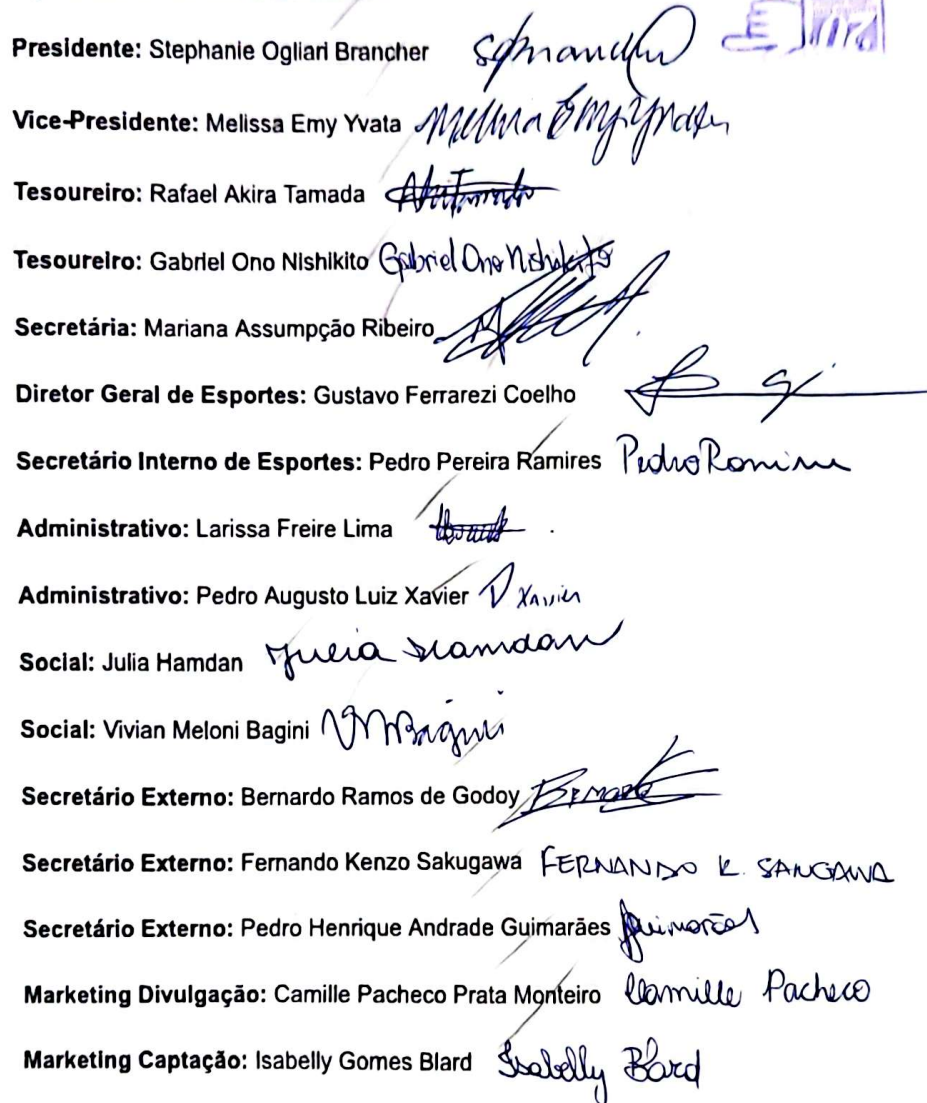 Presidente: Stephanie Ogliari Brancher
Vice-Presidente: Melissa Emy Yvata Melissa Emy Yvata
Tesoureiro: Rafael Akira Tamada
Tesoureiro: Gabriel Ono Nishikito Gabriel Ono Nishikito
Secretária: Mariana Assumpção Ribeiro
Diretor Geral de Esportes: Gustavo Ferrarezi Coelho
Secretário Interno de Esportes: Pedro Pereira Ramires Pedro Ramires
Administrativo: Larissa Freire Lima
Administrativo: Pedro Augusto Luiz Xavier P Xavier
Social: Julia Hamdan Julia Hamdan
Social: Vivian Meloni Bagini VMBagini
Secretário Externo: Bernardo Ramos de Godoy
Secretário Externo: Fernando Kenzo Sakugawa FERNANDO K. SAKUGAWA
Secretário Externo: Pedro Henrique Andrade Guimarães Guimarães
Marketing Divulgação: Camille Pacheco Prata Monteiro Camille Pacheco
Marketing Captação: Isabelly Gomes Blard Isabelly Blard